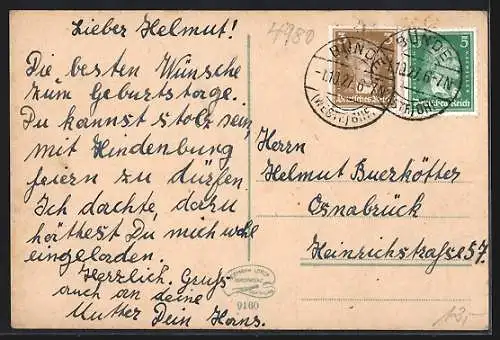 Lieber Helmut!
Die besten Wünsche
zum Geburtstage.
Du kannst stolz sein,
mit Hindenburg
feiern zu dürfen.
Ich dachte, dazu
hättest Du mich
eingeladen.
Herzlich. Gruß
auch an deine
Mutter Dein Hans.
4980
BÜNDE
-1.10.27. 6-7N.
(WESTF)
BÜNDE
10.27. 6-7N.
3
Deutsches Reich
5
Reich
Herrn
Helmut Buerkötter
Osnabrück
Heinrichstraße 57.
9160
12,-